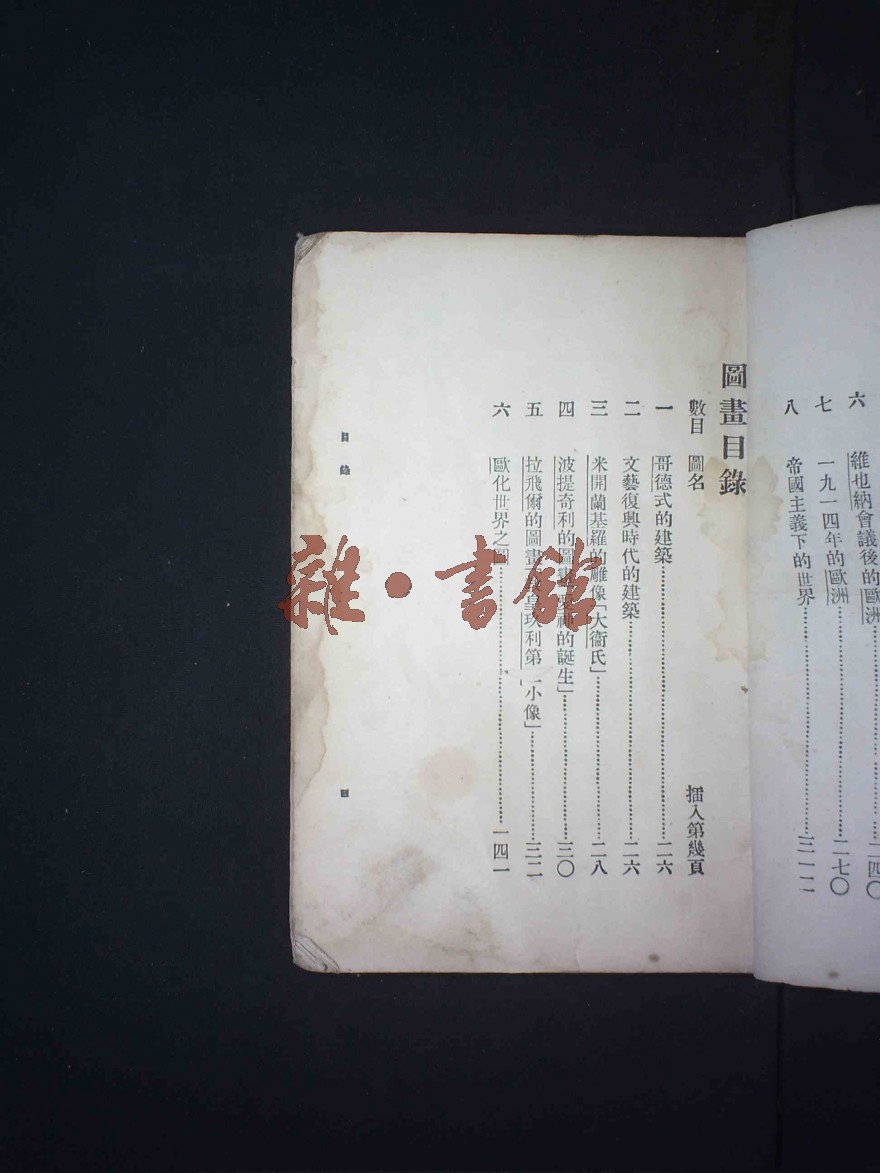 六　維也納會議後的歐洲……二四〇
七　一九一四年的歐洲……二七〇
八　帝國主義下的世界……三一二
圖畫目錄
數目　圖名　插入第幾頁
一　哥德式的建築……二六
二　文藝復興時代的建築……二六
三　米開蘭基羅的雕像「大衞氏」……二八
四　波提奇利的圖畫「愛神的誕生」……三〇
五　拉飛爾的圖畫「教皇玖利第二小像」……三二
六　歐化世界之圖……一四一
目錄
四
雜·書館